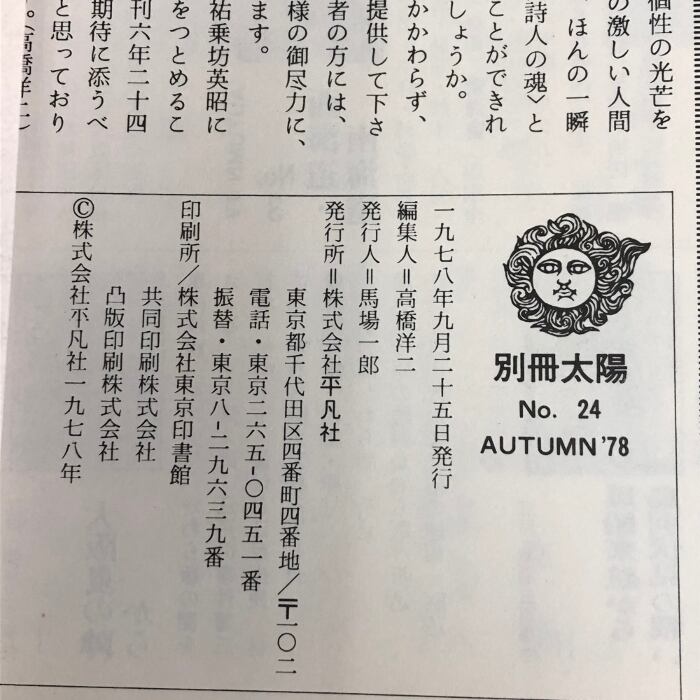 個性の光芒を
の激しい人間
、ほんの一瞬
詩人の魂〉と
ことができれ
しょうか。
かかわらず、
提供して下さ
者の方には、
様の御尽力に、
ます。
祐乗坊英昭に
をつとめるこ
刊六年二十四
期待に添うべ
と思っており
。〈高橋洋二〉
別冊太陽
No. 24
AUTUMN'78
一九七八年九月二十五日発行
編集人=高橋洋二
発行人=馬場一郎
発行所=株式会社平凡社
東京都千代田区四番町四番地/〒一〇二
電話・東京二六五-〇四五一番
振替・東京八-二九六三九番
印刷所/株式会社東京印書館
共同印刷株式会社
凸版印刷株式会社
©株式会社平凡社一九七八年